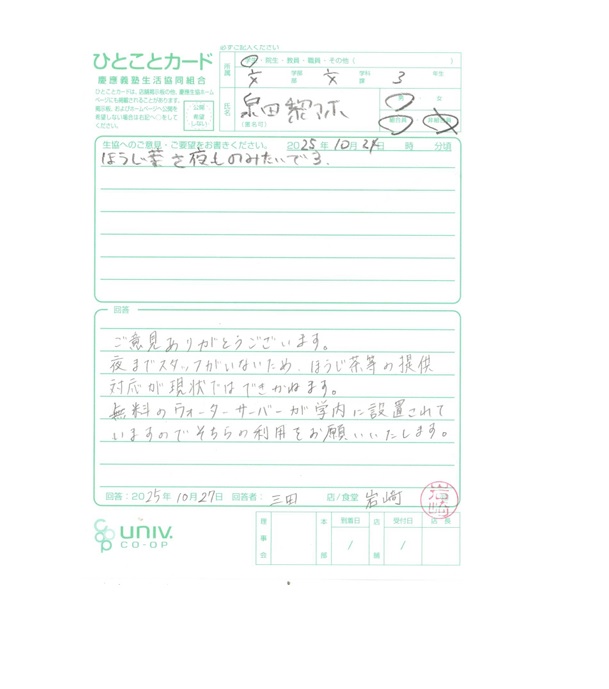 必ずご記入ください
ひとことカード
慶應義塾生活協同組合
ひとことカードは、店頭掲示板の他、慶應生協ホームページにも掲載されることがあります。掲示板、およびホームページへ公開を希望しない場合は右記へ○をしてください。
公開希望しない
所属
学生・院生・教員・職員・その他( )
文 学部 文 学科 3 年生
氏名
(署名可)
男・女
組合員
生協へのご意見・ご要望をお書きください。 2025年10月24 時 分頃
ほうじ茶を夜ものみたいです。
回答
ご意見ありがとうございます。
夜までスタッフがいないため、ほうじ茶等の提供
対応が現状ではできかねます。
無料のウォーターサーバーが学内に設置されて
いますのでそちらの利用をお願いいたします。
回答:2025年10月27日 回答者: 三田 店/食堂 岩崎
岩崎
UNIV.
CO-OP
理事会
本部
到着日
/
店舗
受付日
/
店長